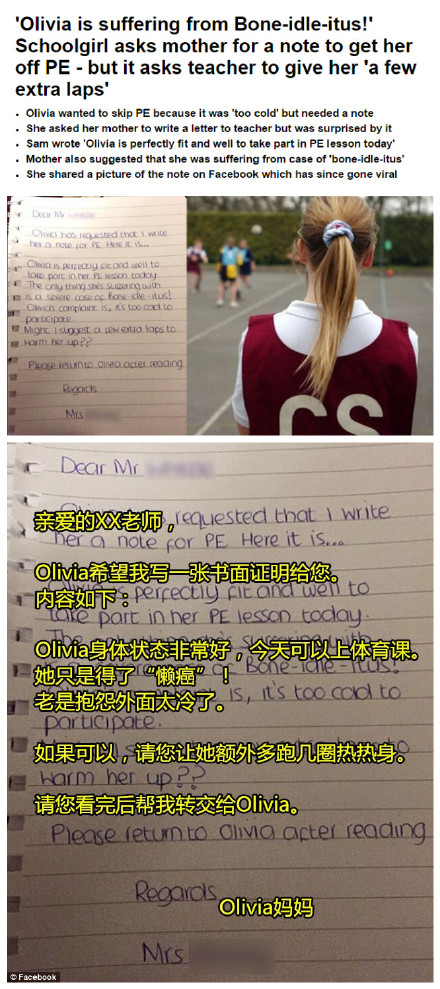 'Olivia is suffering from Bone-idle-itus!'
Schoolgirl asks mother for a note to get her
off PE - but it asks teacher to give her 'a few
extra laps'
Olivia wanted to skip PE because it was 'too cold' but needed a note
She asked her mother to write a letter to teacher but was surprised by it
Sam wrote 'Olivia is perfectly fit and well to take part in PE lesson today'
Mother also suggested that she was suffering from case of 'bone-idle-itus'
She shared a picture of the note on Facebook which has since gone viral
Dear Mr
Olivia has requested that I write
her a note for PE. Here it is...
Olivia is perfectly fit and well to
take part in her PE lesson today.
The only thing she's suffering with
is a severe case of Bone-idle-itus!
Olivia's complaint is, it's too cold to
participate.
Might I suggest a few extra laps to
warm her up??
Please return to Olivia after reading
Regards
Mrs
CS
Dear Mr
亲爱的XX老师，
requested that I write
her a note for PE Here it is...
Olivia希望我写一张书面证明给您。
perfectly fit and well to
内容如下：
take part in her PE lesson today.
Olivia身体状态非常好，今天可以上体育课。
Bone-idle-itus!
她只是得了“懒癌”！
is, it's too cold to
老是抱怨外面太冷了。
participate.
如果可以，请您让她额外多跑几圈热热身。
warm her up??
请您看完后帮我转交给Olivia。
Please return to Olivia after reading
Regards
Olivia妈妈
Mrs
© Facebook